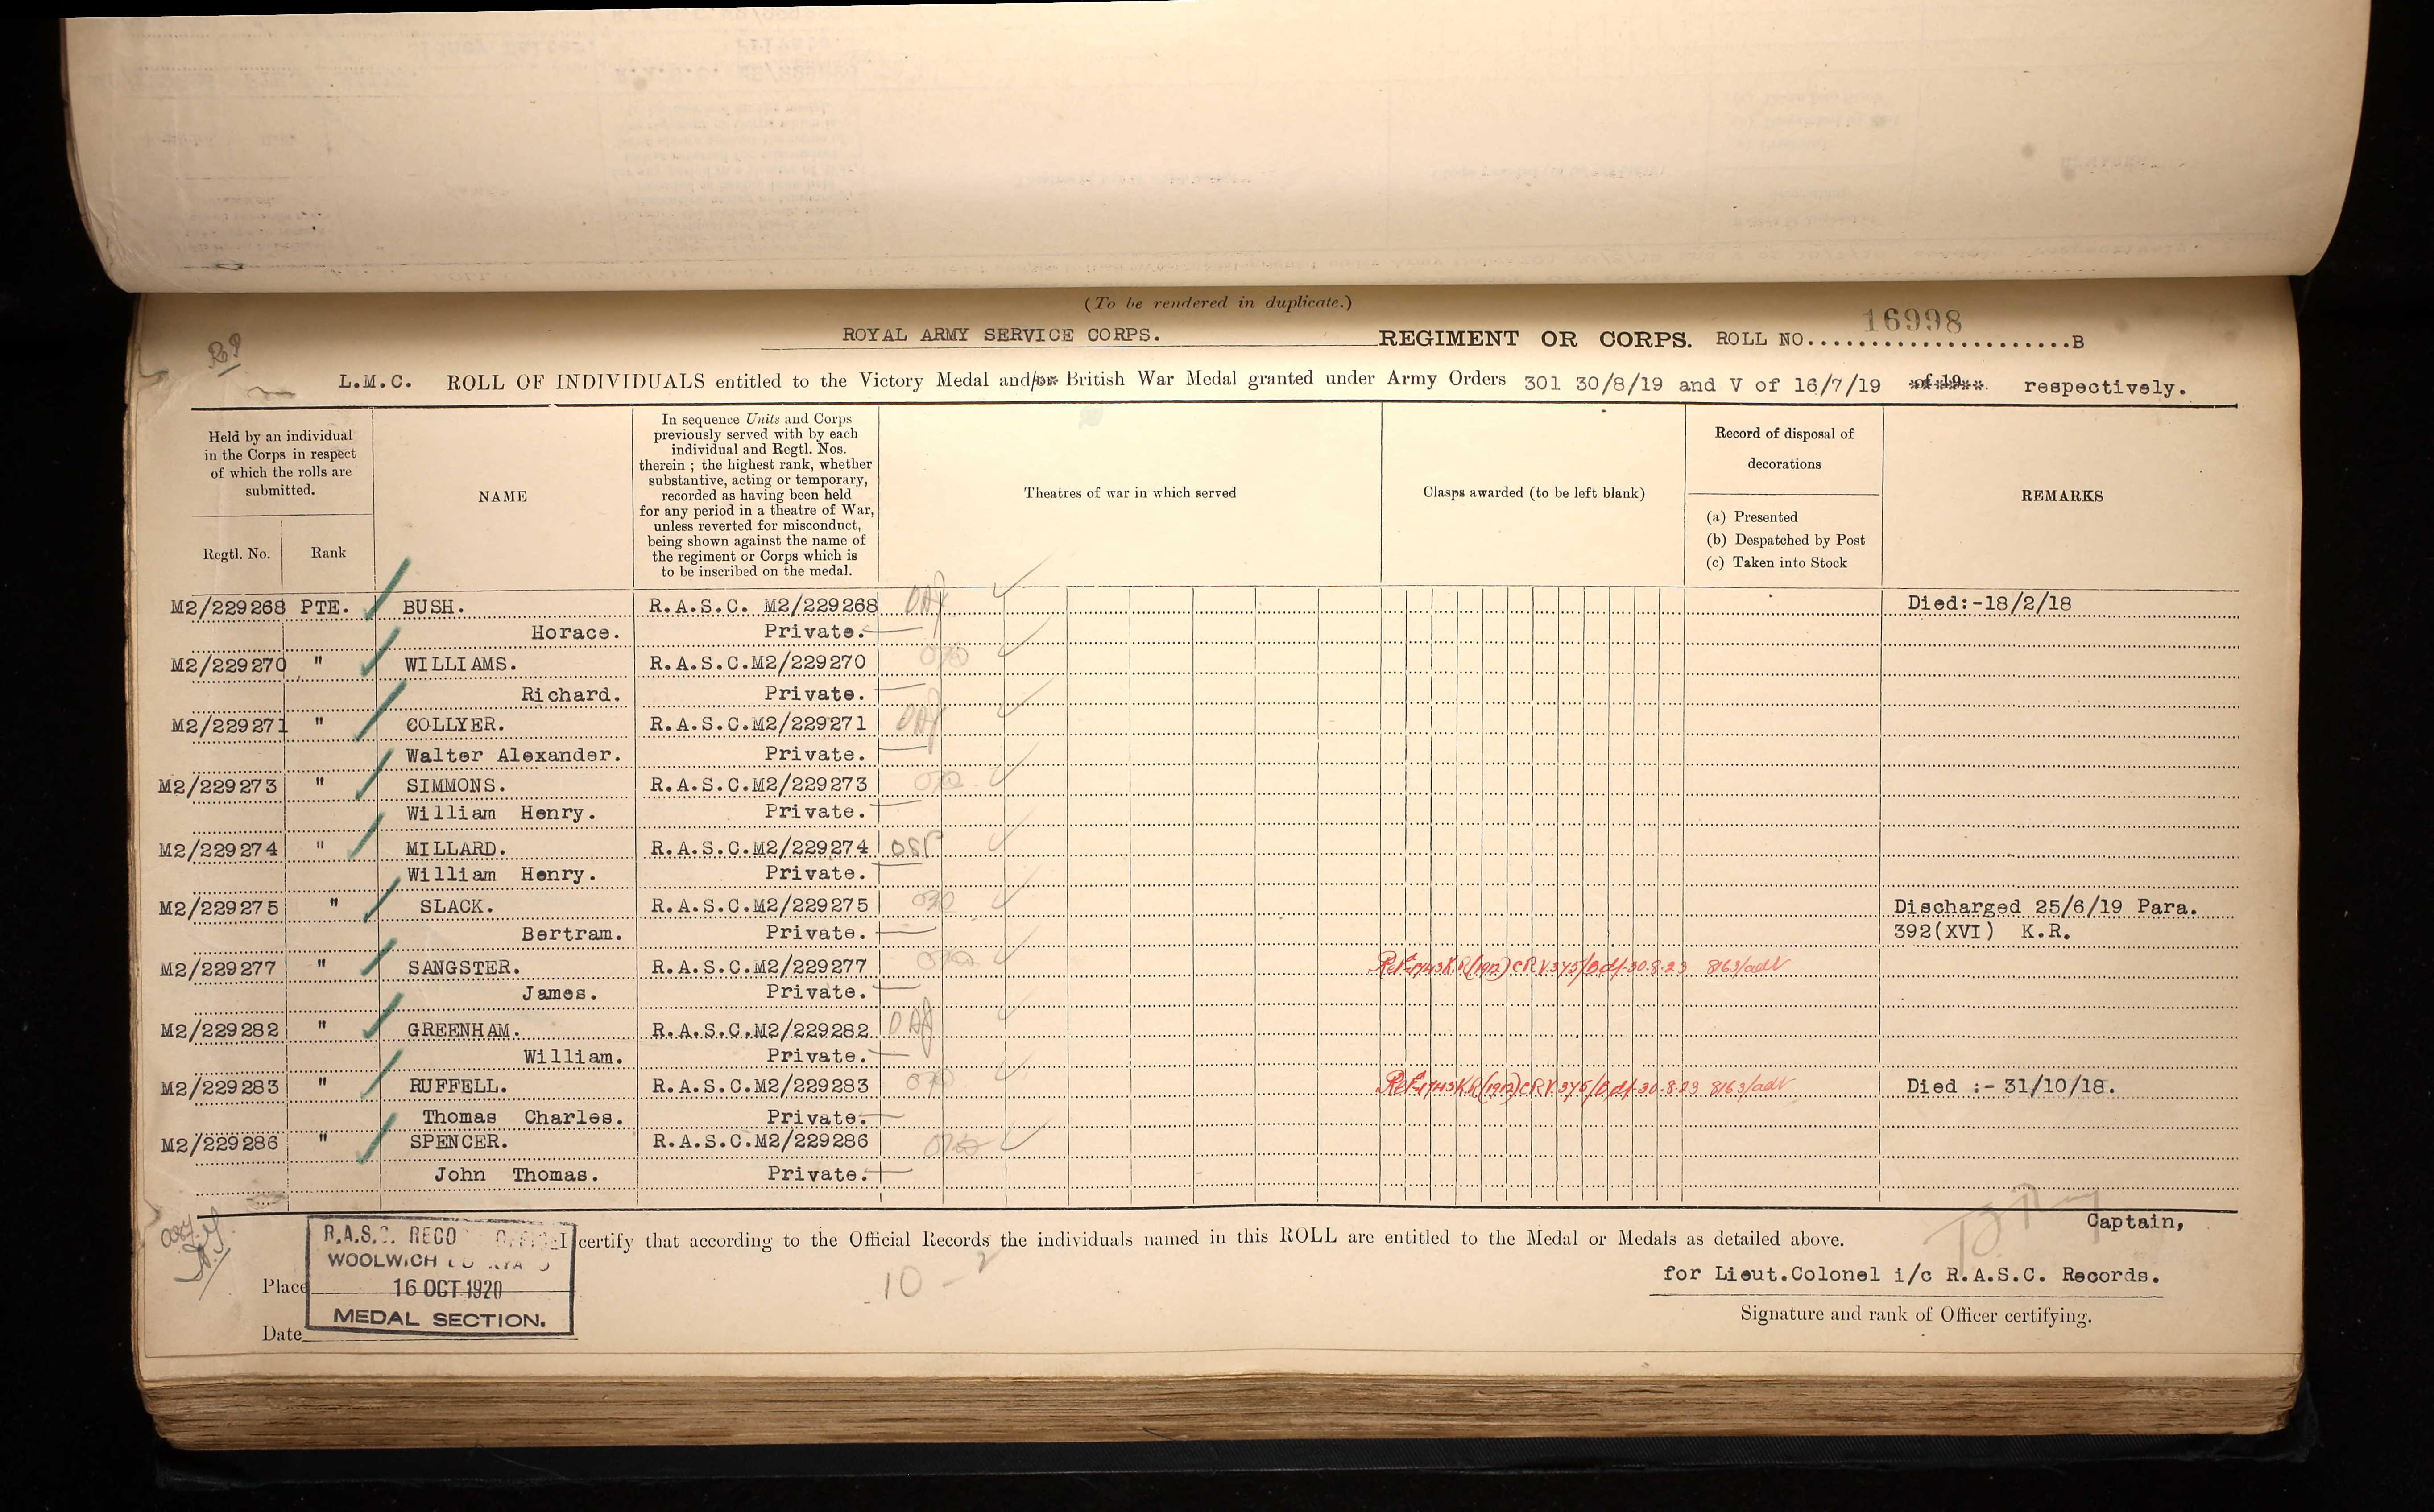 (To be rendered in duplicate.)
16998
ROYAL ARMY SERVICE CORPS. REGIMENT OR CORPS. ROLL NO......................B
L.M.C. ROLL OF INDIVIDUALS entitled to the Victory Medal and/or British War Medal granted under Army Orders 301 30/8/19 and V of 16/7/19 of 19 respectively.
Held by an individual
in the Corps in respect
of which the rolls are
submitted.
Regtl. No.
Rank
NAME
In sequence Units and Corps
previously served with by each
individual and Regtl. Nos.
therein ; the highest rank, whether
substantive, acting or temporary,
recorded as having been held
for any period in a theatre of War,
unless reverted for misconduct,
being shown against the name of
the regiment or Corps which is
to be inscribed on the medal.
Theatres of war in which served
Clasps awarded (to be left blank)
Record of disposal of
decorations
(a) Presented
(b) Despatched by Post
(c) Taken into Stock
REMARKS
M2/229268 PTE. BUSH. R.A.S.C. M2/229268 Died:-18/2/18
Horace. Private.
M2/229270 " WILLIAMS. R.A.S.C.M2/229270
Richard. Private.
M2/229271 " COLLYER. R.A.S.C.M2/229271
Walter Alexander. Private.
M2/229273 " SIMMONS. R.A.S.C.M2/229273
William Henry. Private.
M2/229274 " MILLARD. R.A.S.C.M2/229274
William Henry. Private.
M2/229275 " SLACK. R.A.S.C.M2/229275 Discharged 25/6/19 Para.
Bertram. Private. 392(XVI) K.R.
M2/229277 " SANGSTER. R.A.S.C.M2/229277 (1912) 30.8.23 8163/adt
James. Private.
M2/229282 " GREENHAM. R.A.S.C.M2/229282
William. Private.
M2/229283 " RUFFELL. R.A.S.C.M2/229283 (1912) 30.8.23 8163/adt Died :- 31/10/18.
Thomas Charles. Private.
M2/229286 " SPENCER. R.A.S.C.M2/229286
John Thomas. Private.
Captain,
I certify that according to the Official Records the individuals named in this ROLL are entitled to the Medal or Medals as detailed above.
R.A.S.C. RECO
WOOLWICH
Place 16 OCT 1920
MEDAL SECTION.
Date
10 - 2
for Lieut.Colonel i/c R.A.S.C. Records.
Signature and rank of Officer certifying.